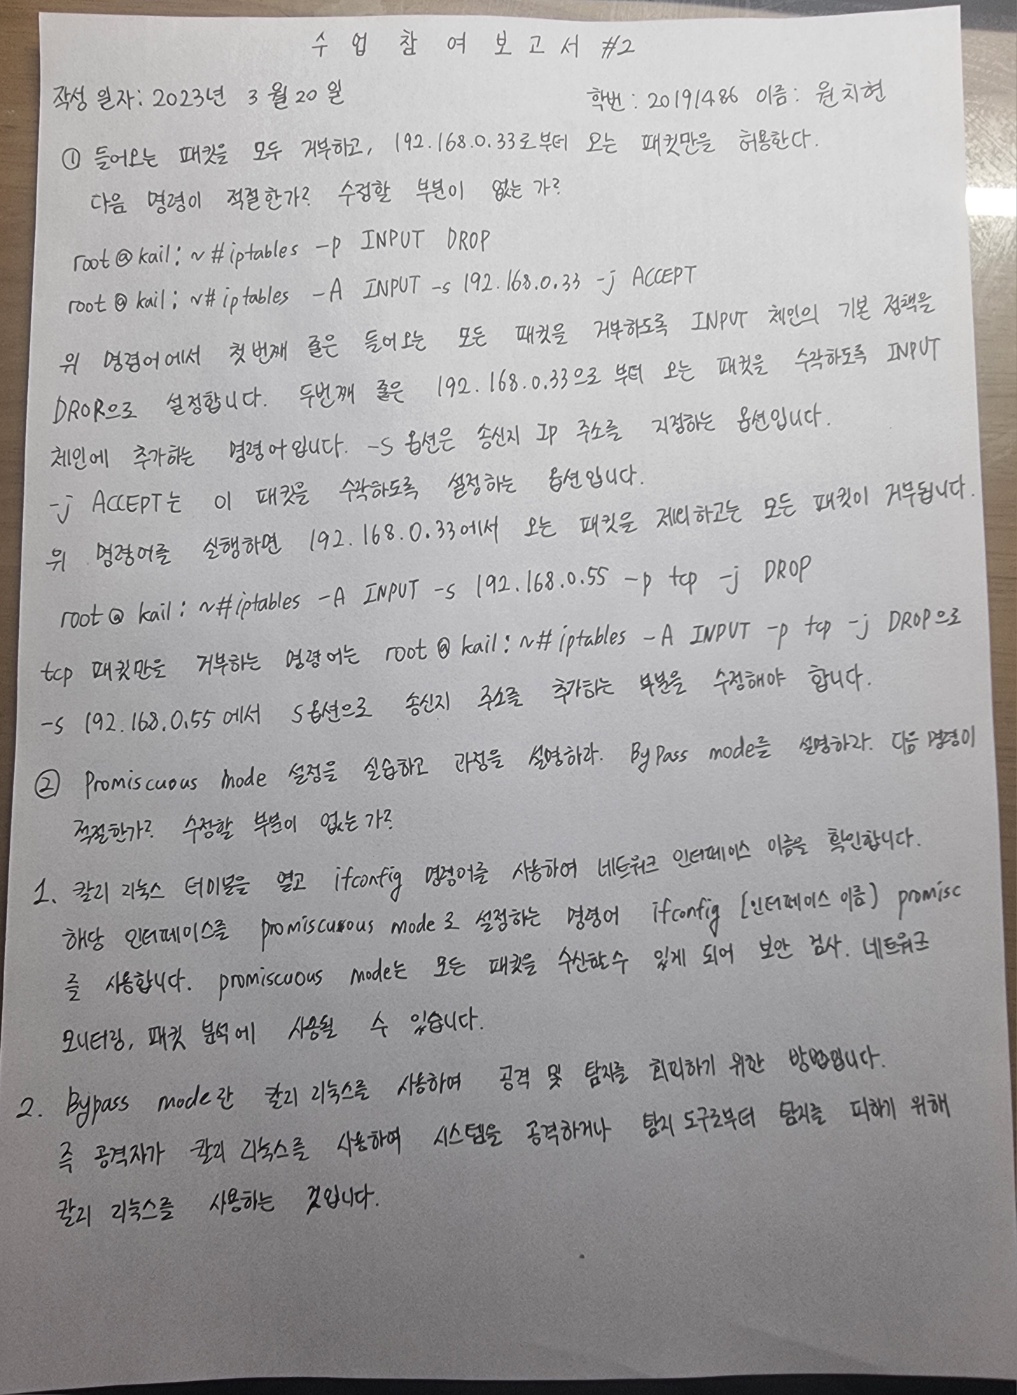 수 업 참 여 보 고 서 #2
작성 일자: 2023년 3월 20일 학번: 20191486 이름: 원치현
① 들어오는 패킷을 모두 거부하고, 192.168.0.33로부터 오는 패킷만을 허용한다.
다음 명령이 적절한가? 수정할 부분이 없는가?
root@kail:~#iptables -p INPUT DROP
root@kail:~#iptables -A INPUT -s 192.168.0.33 -j ACCEPT
위 명령어에서 첫번째 줄은 들어오는 모든 패킷을 거부하도록 INPUT 체인의 기본 정책을
DROP으로 설정합니다. 두번째 줄은 192.168.0.33으로부터 오는 패킷을 수락하도록 INPUT
체인에 추가하는 명령어입니다. -s 옵션은 송신지 IP 주소를 지정하는 옵션입니다.
-j ACCEPT는 이 패킷을 수락하도록 설정하는 옵션입니다.
위 명령어를 실행하면 192.168.0.33에서 오는 패킷을 제외하고는 모든 패킷이 거부됩니다.
root@kail:~#iptables -A INPUT -s 192.168.0.55 -p tcp -j DROP
tcp 패킷만을 거부하는 명령어는 root@kail:~#iptables -A INPUT -p tcp -j DROP으로
-s 192.168.0.55에서 s옵션으로 송신지 주소를 추가하는 부분을 수정해야 합니다.
② Promiscuous mode 설정을 실습하고 과정을 설명하라. ByPass mode를 설명하라. 다음 명령이
적절한가? 수정할 부분이 없는가?
1. 칼리 리눅스 터미널을 열고 ifconfig 명령어를 사용하여 네트워크 인터페이스 이름을 확인합니다.
해당 인터페이스를 promiscuous mode로 설정하는 명령어 ifconfig [인터페이스 이름] promisc
를 사용합니다. promiscuous mode는 모든 패킷을 수신할수 있게 되어 보안 검사, 네트워크
모니터링, 패킷 분석에 사용될 수 있습니다.
2. Bypass mode란 칼리 리눅스를 사용하여 공격 및 탐지를 회피하기 위한 방법입니다.
즉 공격자가 칼리 리눅스를 사용하여 시스템을 공격하거나 탐지 도구로부터 탐지를 피하기 위해
칼리 리눅스를 사용하는 것입니다.